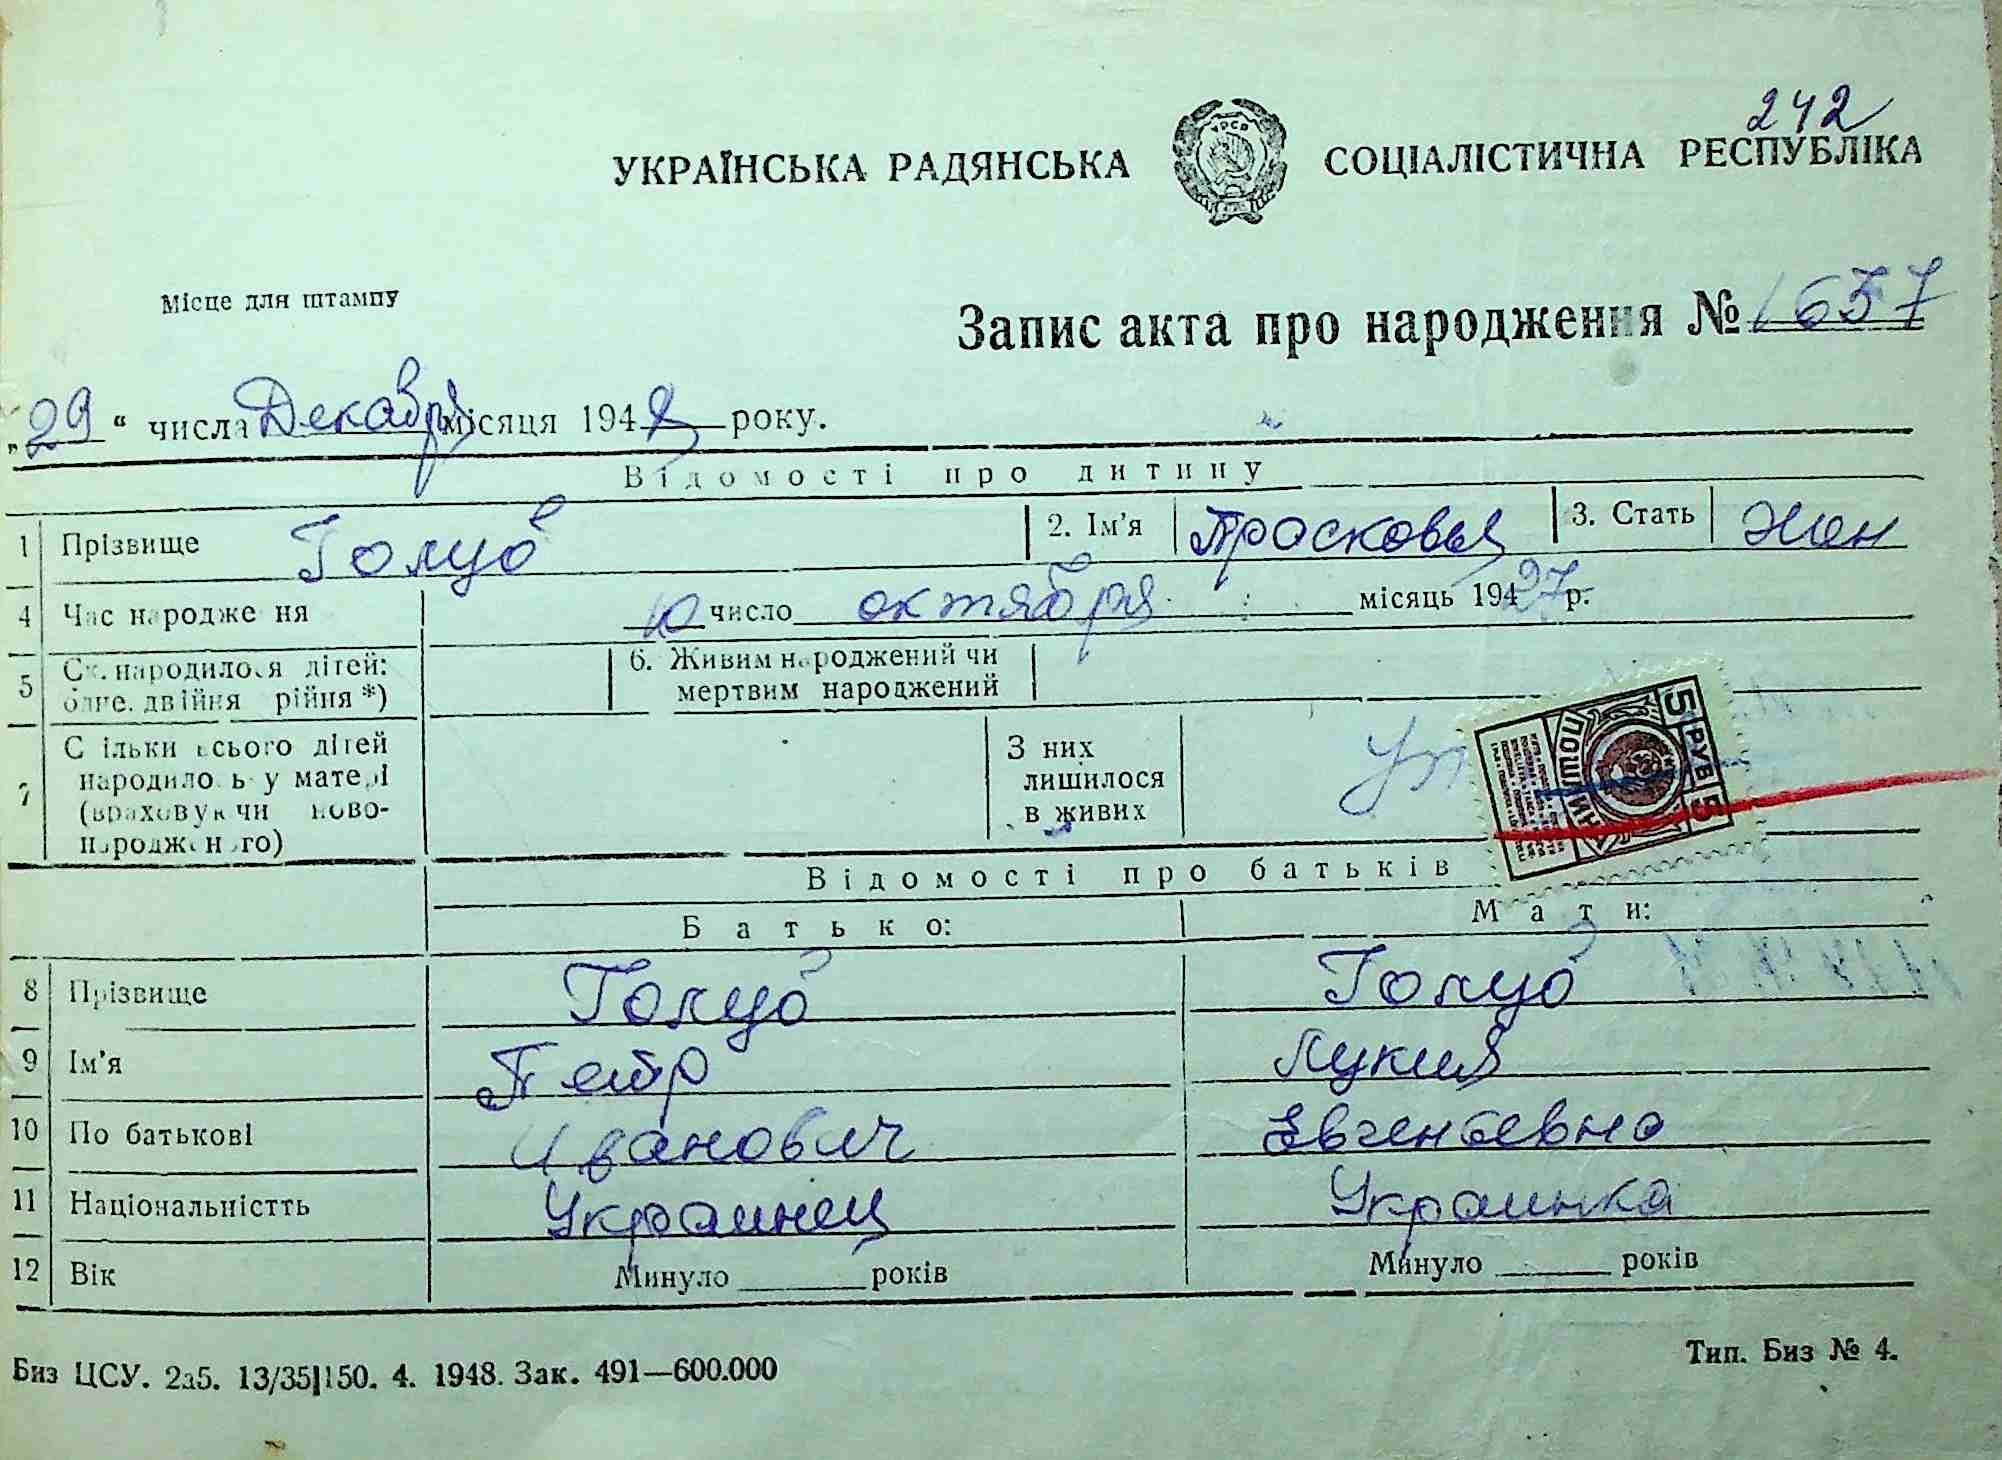 242
УКРАЇНСЬКА РАДЯНСЬКА СОЦІАЛІСТИЧНА РЕСПУБЛІКА
УРСР
Місце для штампу
Запис акта про народження № 1657
„29“ числа Декабря місяця 1948 року.
Відомості про дитину
1 Прізвище Голуб 2. Ім'я Прасковья 3. Стать жен
4 Час народже ня 10 число октября місяць 1927 р.
5 Ск. народилося дітей: одне. двійня рійня *) 6. Живим народжений чи мертвим народжений
7 С ільки всього дітей народило ь у матері (враховуючи ново-народженого) З них лишилося в живих
5 РУБ 5
ПОШЛИН
Відомості про батьків
Батько: Мати:
8 Прізвище Голуб Голуб
9 Ім'я Петр Лукия
10 По батькові Иванович Евгеньевна
11 Національністть Украинец Украинка
12 Вік Минуло років Минуло років
Биз ЦСУ. 2а5. 13/35|150. 4. 1948. Зак. 491—600.000 Тип. Биз № 4.